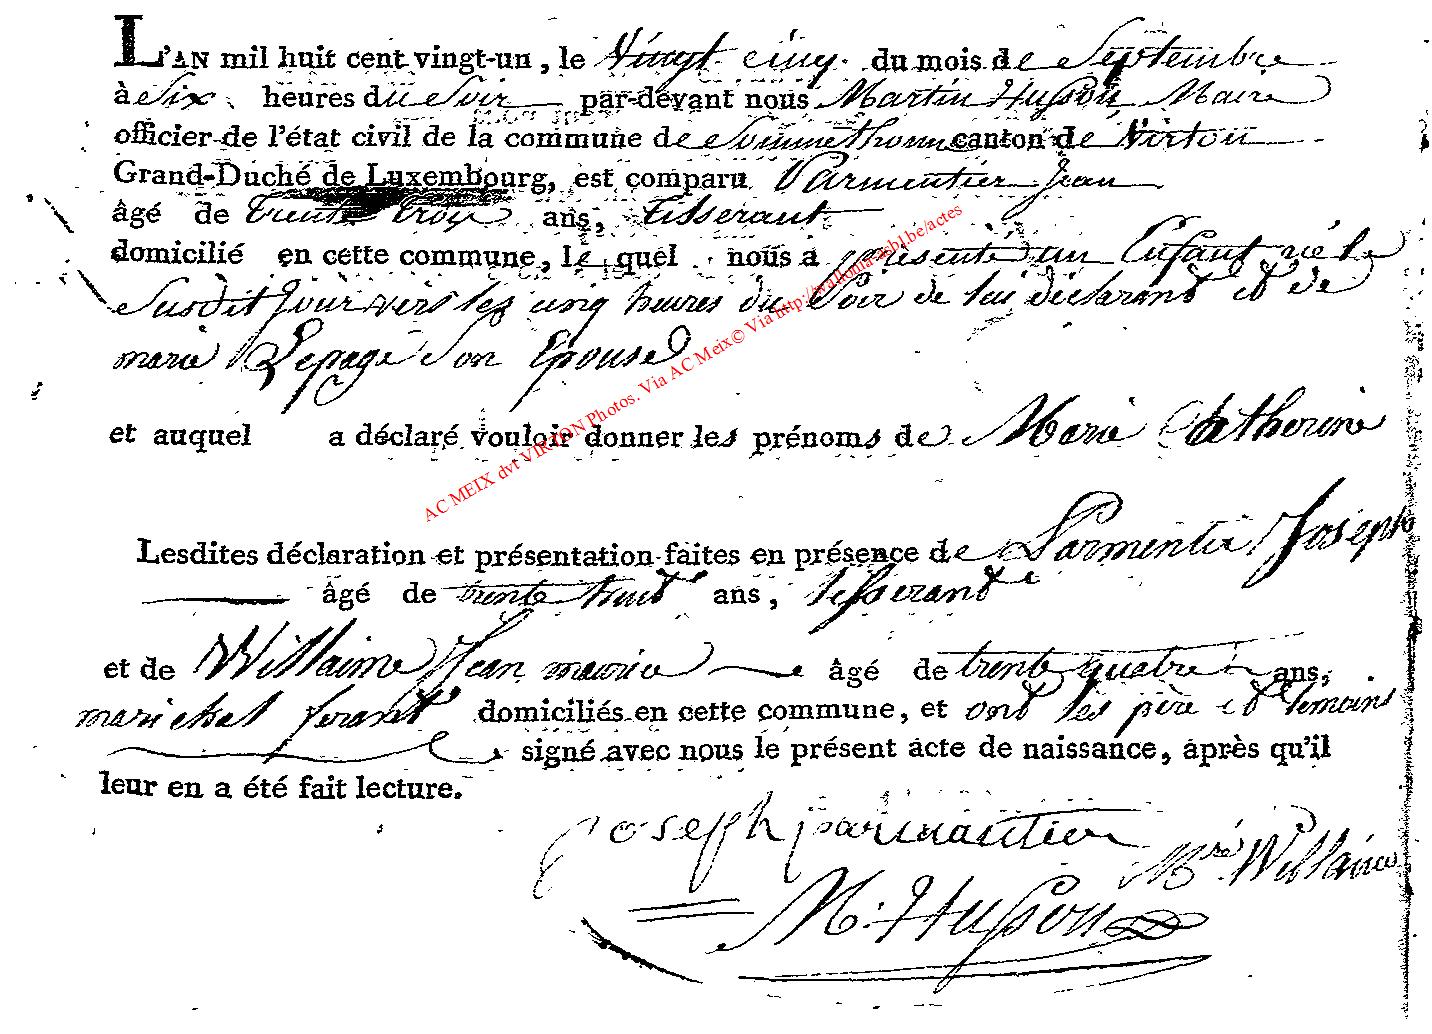 L'AN mil huit cent vingt-un, le Vingt cinq du mois de Septembre
à Six heures du Soir par-devant nous Martin Husson, Maire
officier de l'état civil de la commune de Sommethonne canton de Virton
Grand-Duché de Luxembourg, est comparu Parmentier Jean
âgé de trente trois ans, tisserant
domicilié en cette commune, le quel nous a présenté un Enfant né le
Susdit Jour vers les cinq heures du Soir de lui déclarant et de
marie Lepage Son Epouse
et auquel a déclaré vouloir donner les prénoms de Marie Catherine
Lesdites déclaration et présentation faites en présence de Parmentier Joseph
âgé de trente huit ans, tisserant
et de Willaime Jean maurice âgé de trente quatre ans,
marichal ferant domiciliés en cette commune, et ont les père et temoins
signé avec nous le présent acte de naissance, après qu'il
leur en a été fait lecture.
joseph parmantier
Mce Willaime
M. Husson
AC MEIX dvt VIRTON Photos. Via AC Meix© Via http://wallonia-asbl.be/actes